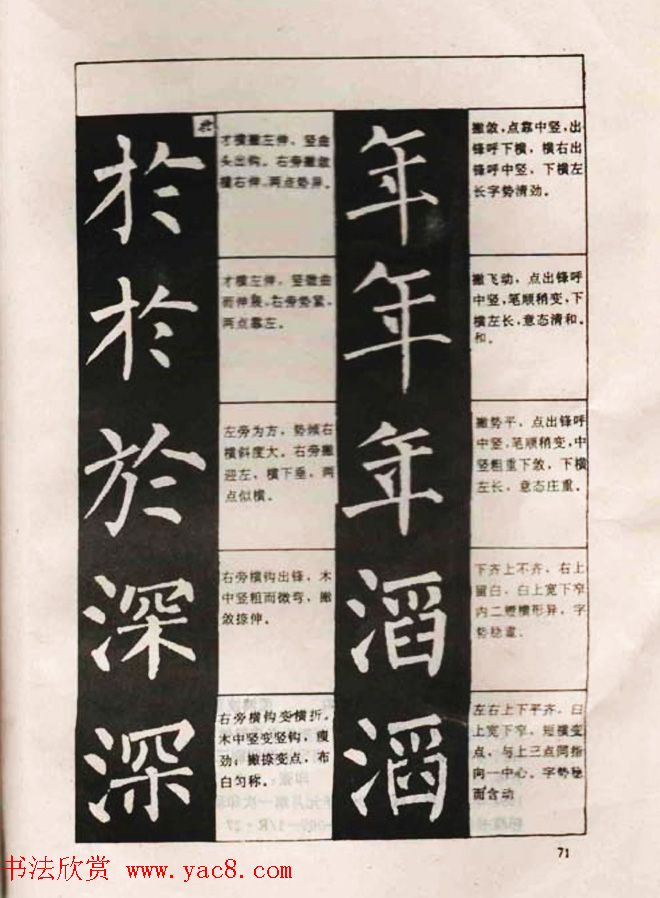 於
才横撇左伸，竖曲
头出钩。右旁撇敛
捺右伸，两点势异。
於
才横左伸，竖微曲
而伸展，右旁势紧，
两点靠左。
於
左旁为方，势倾右
横斜度大。右旁撇
迎左，横下垂，两
点似横。
深
右旁横钩出锋，木
中竖粗而微弯，撇
敛捺伸。
深
右旁横钩变横折。
木中竖变竖钩，瘦
劲；撇捺变点，布
白匀称。
年
撇敛，点靠中竖，出
锋呼下横，横右出
锋呼中竖，下横左
长字势清劲。
年
撇飞动，点出锋呼
中竖，笔顺稍变，下
横左长，意态清和。
和。
年
撇势平，点出锋呼
中竖，笔顺稍变，中
竖粗重下敛，下横
左长，意态庄重。
滔
下齐上不齐，右上
留白，臼上宽下窄
内二短横形异，字
势稳重。
滔
左右上下平齐。臼
上宽下窄，短横变
点，与上三点同指
向一中心。字势稳
而含动
71
书法欣赏 www.yac8.com